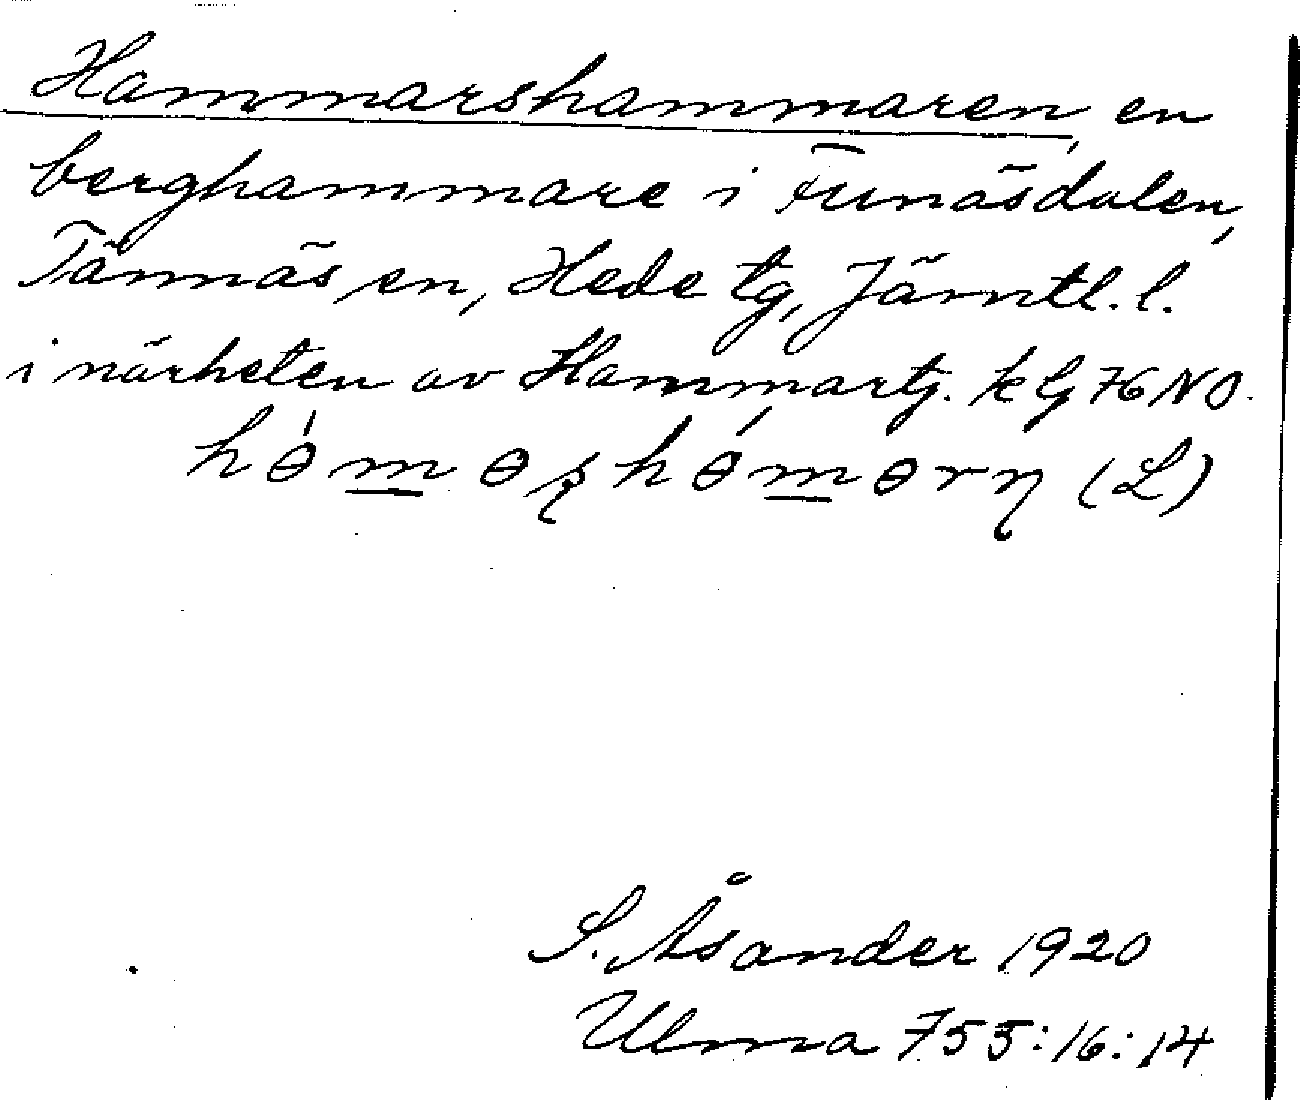 Hammarshammaren, en
berghammare i Funäsdalen,
Tännäs sn, Hede tg, Jämtl. l.
i närheten av Hammartj. k G 76 NO.
(L)
S. Åsander 1920
Ulma 755:16:14